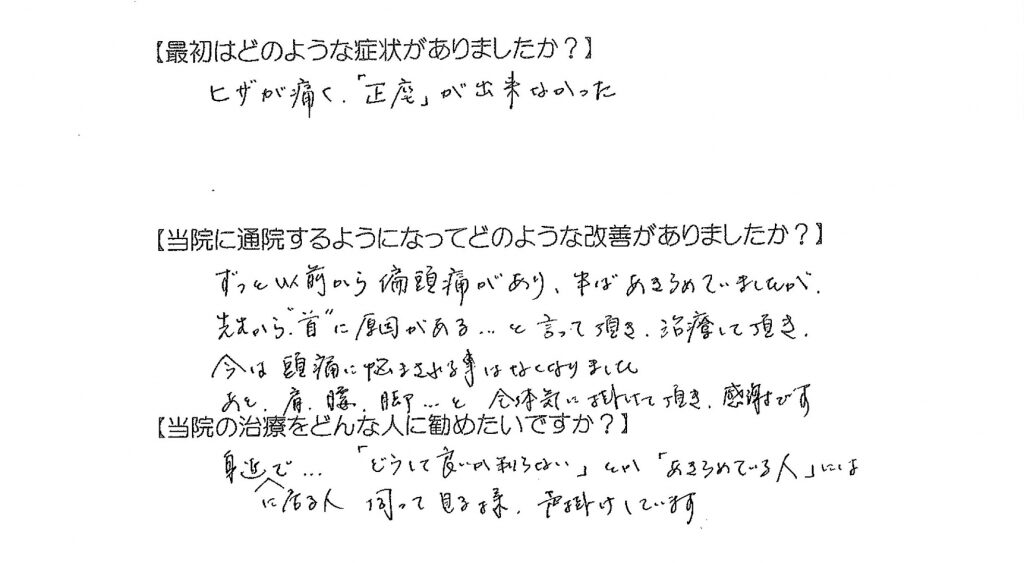 【最初はどのような症状がありましたか？】
ヒザが痛く、「正座」が出来なかった
【当院に通院するようになってどのような改善がありましたか？】
ずっと以前から偏頭痛があり、半ばあきらめていましたが、
先生から"首"に原因がある…と言って頂き、治療して頂き、
今は頭痛に悩まされる事はなくなりました
あと、肩、腰、脚…と全体気に掛けて頂き、感謝です
【当院の治療をどんな人に勧めたいですか？】
身近で…「どうして良いか判らない」とか「あきらめている人」には
に居る人 伺って見る様、声掛けしています